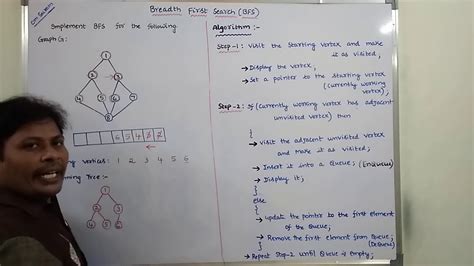 Breadth First Search (BFS)
Implement BFS for the following
Graph G:
1
2 3
4 5 6 7
8
6 5 4 3 2
vertices: 1 2 3 4 5 6
Tree:-
1
2 3
4 5 6
Algorithm :-
Step-1 : Visit the starting vertex and make
it as visited ;
→ Display the vertex ;
→ Set a pointer to the starting vertex
(currently working vertex) ;
Step-2 : If (currently working vertex has adjacent
unvisited vertex) then
{
→ visit the adjacent unvisited vertex
and make it as visited ;
→ Insert it into a Queue ; (Enqueue)
→ Display it ;
}
else
{
→ update the pointer to the first element
of the Queue ;
→ Remove the first element from Queue ;
(Dequeue)
}
→ Repeat Step-2 until Queue is Empty ;